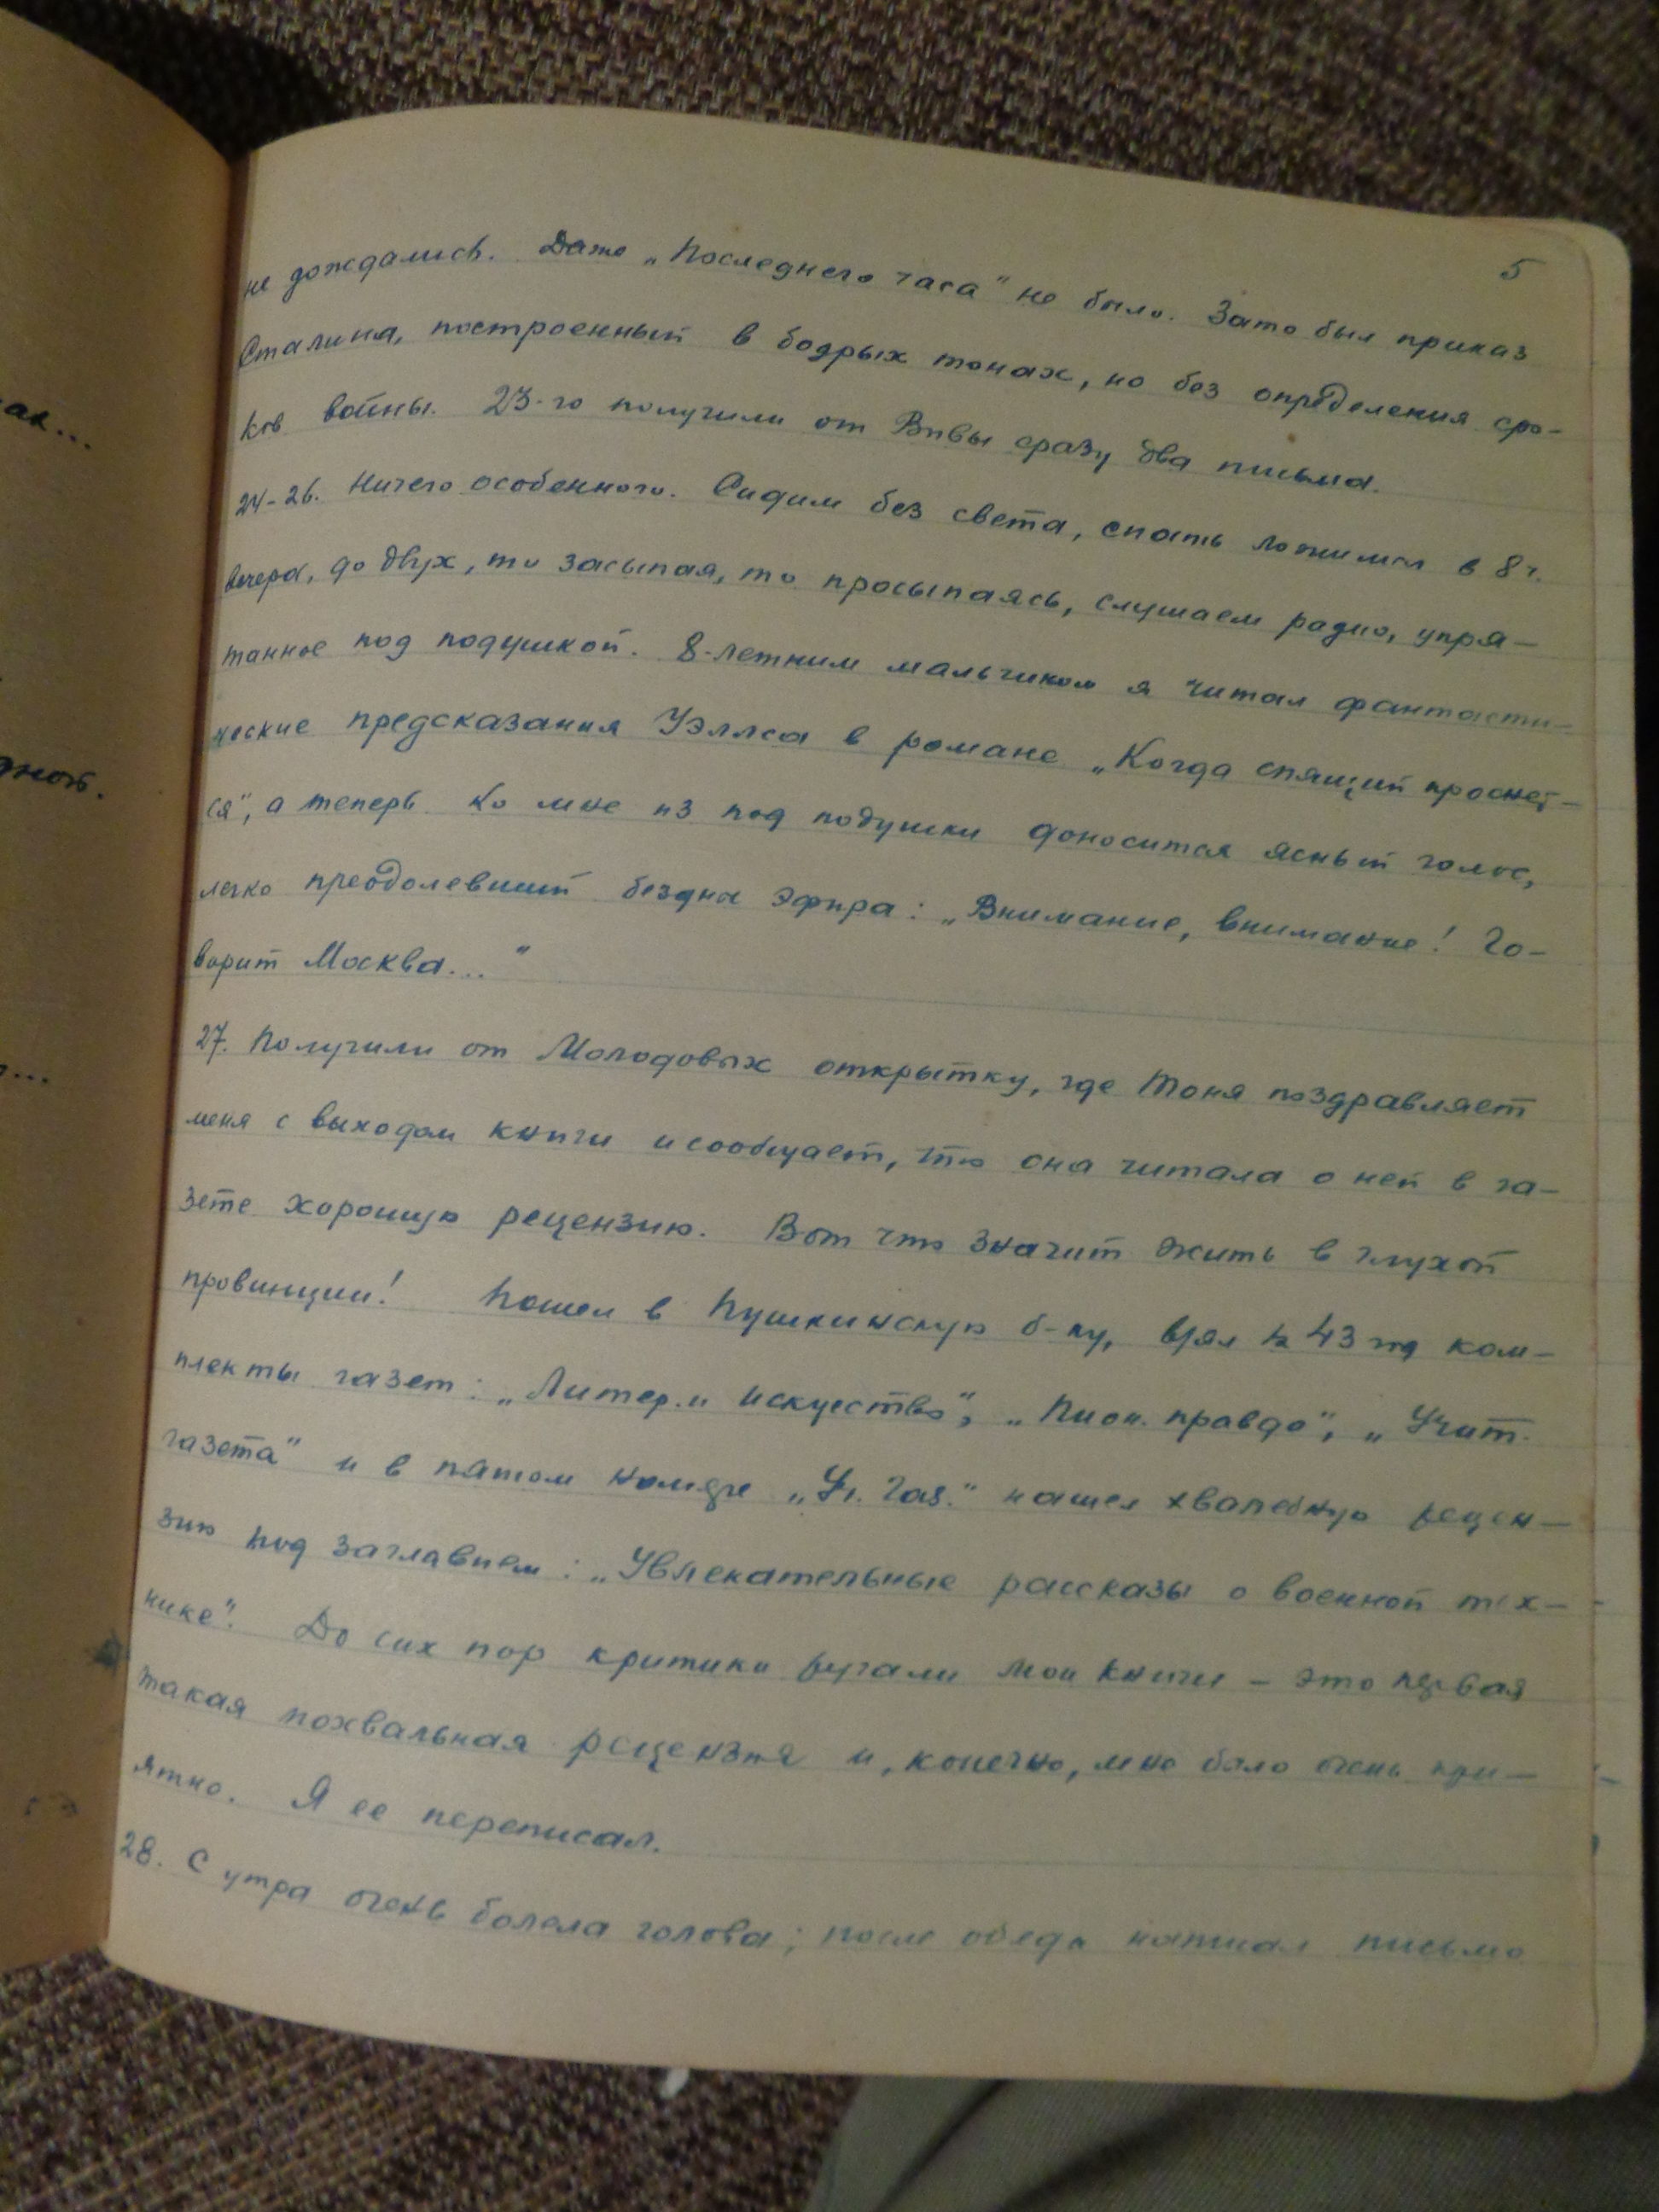 5
не дождались. Даже „Последнего часа" не было. Зато был приказ
Сталина, построенный в бодрых тонах, но без определения сро-
ков войны. 23-го получили от Вивы сразу два письма.
24-26. Ничего особенного. Сидим без света, спать ложимся в 8 ч.
вечера, до двух, то засыпая, то просыпаясь, слушаем радио, упря-
танное под подушкой. 8-летним мальчиком я читал фантасти-
ческие предсказания Уэллса в романе „Когда спящий проснет-
ся", а теперь ко мне из под подушки доносится ясный голос,
легко преодолевший бездны эфира: „Внимание, внимание! Го-
ворит Москва..."
27. Получили от Молодовых открытку, где Тоня поздравляет
меня с выходом книги и сообщает, что она читала о ней в га-
зете хорошую рецензию. Вот что значит жить в глухой
провинции! Пошел в Пушкинскую б-ку, взял за 43 год ком-
плекты газет: „Литер. и искусство", „Пион. правда", „Учит.
газета" и в пятом номере „Уч. газ." нашел хвалебную рецен-
зию под заглавием: „Увлекательные рассказы о военной тех-
нике". До сих пор критики ругали мои книги - это первая
такая похвальная рецензия и, конечно, мне было очень при-
ятно. Я ее переписал.
28. С утра очень болела голова; после обеда написал письмо